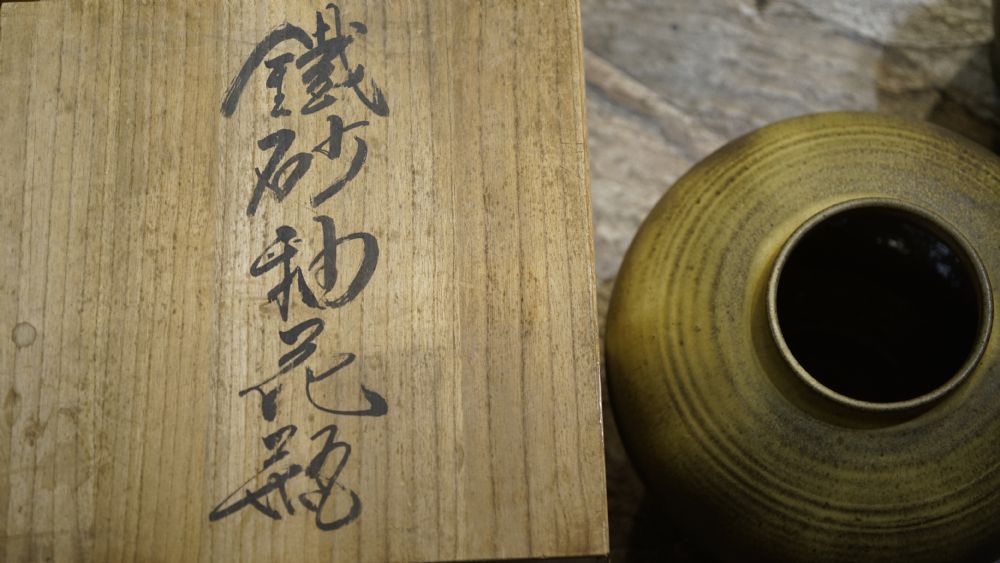 鐵砂釉花瓶